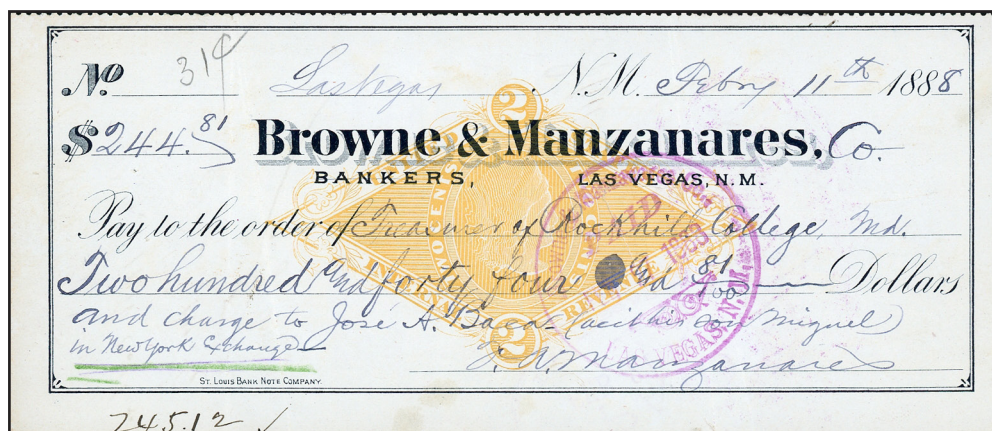 No. 314 Las Vegas, N.M. Febry 11th 1888
$244.81 Browne & Manzanares, Co.
BANKERS, LAS VEGAS, N.M.
Pay to the order of Treasurer of Rockhill College, Md.
Two hundred and forty four and 81/100 Dollars
and charge to José A. Baca (acct his son Miguel)
in New York Exchange
F. A. Manzanares
ST. LOUIS BANK NOTE COMPANY.
245.12
2
UNITED
INTERNAL REVENUE
TWO CENTS
2
PAID
LAS VEGAS, N.M.